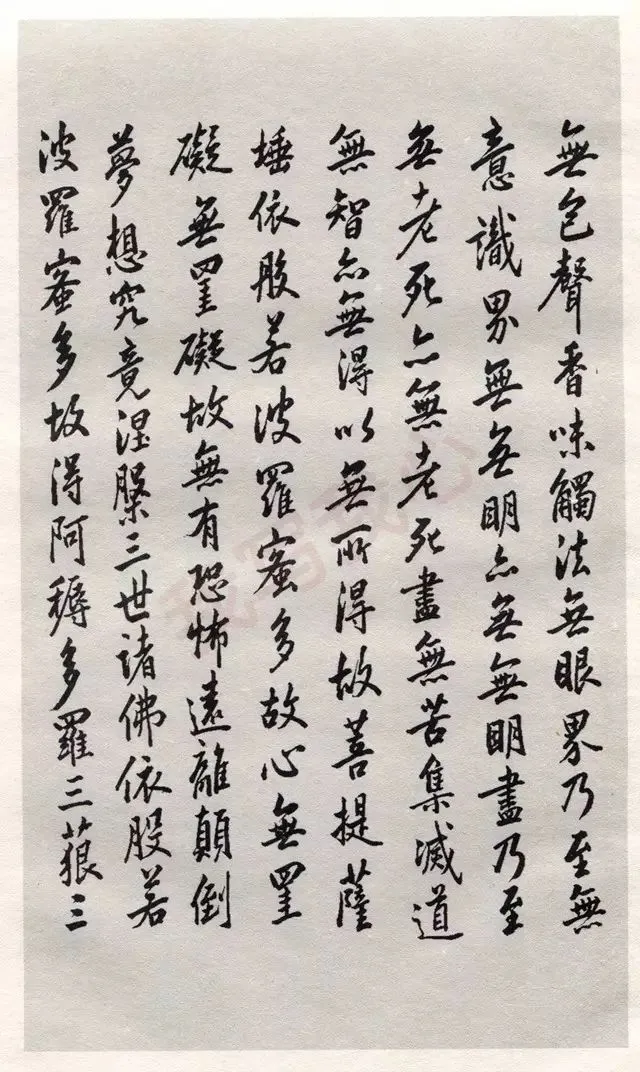 無色聲香味觸法無眼界乃至無
意識界無無明亦無無明盡乃至
無老死亦無老死盡無苦集滅道
無智亦無得以無所得故菩提薩
埵依般若波羅蜜多故心無罣
礙無罣礙故無有恐怖遠離顛倒
夢想究竟涅槃三世諸佛依般若
波羅蜜多故得阿耨多羅三藐三